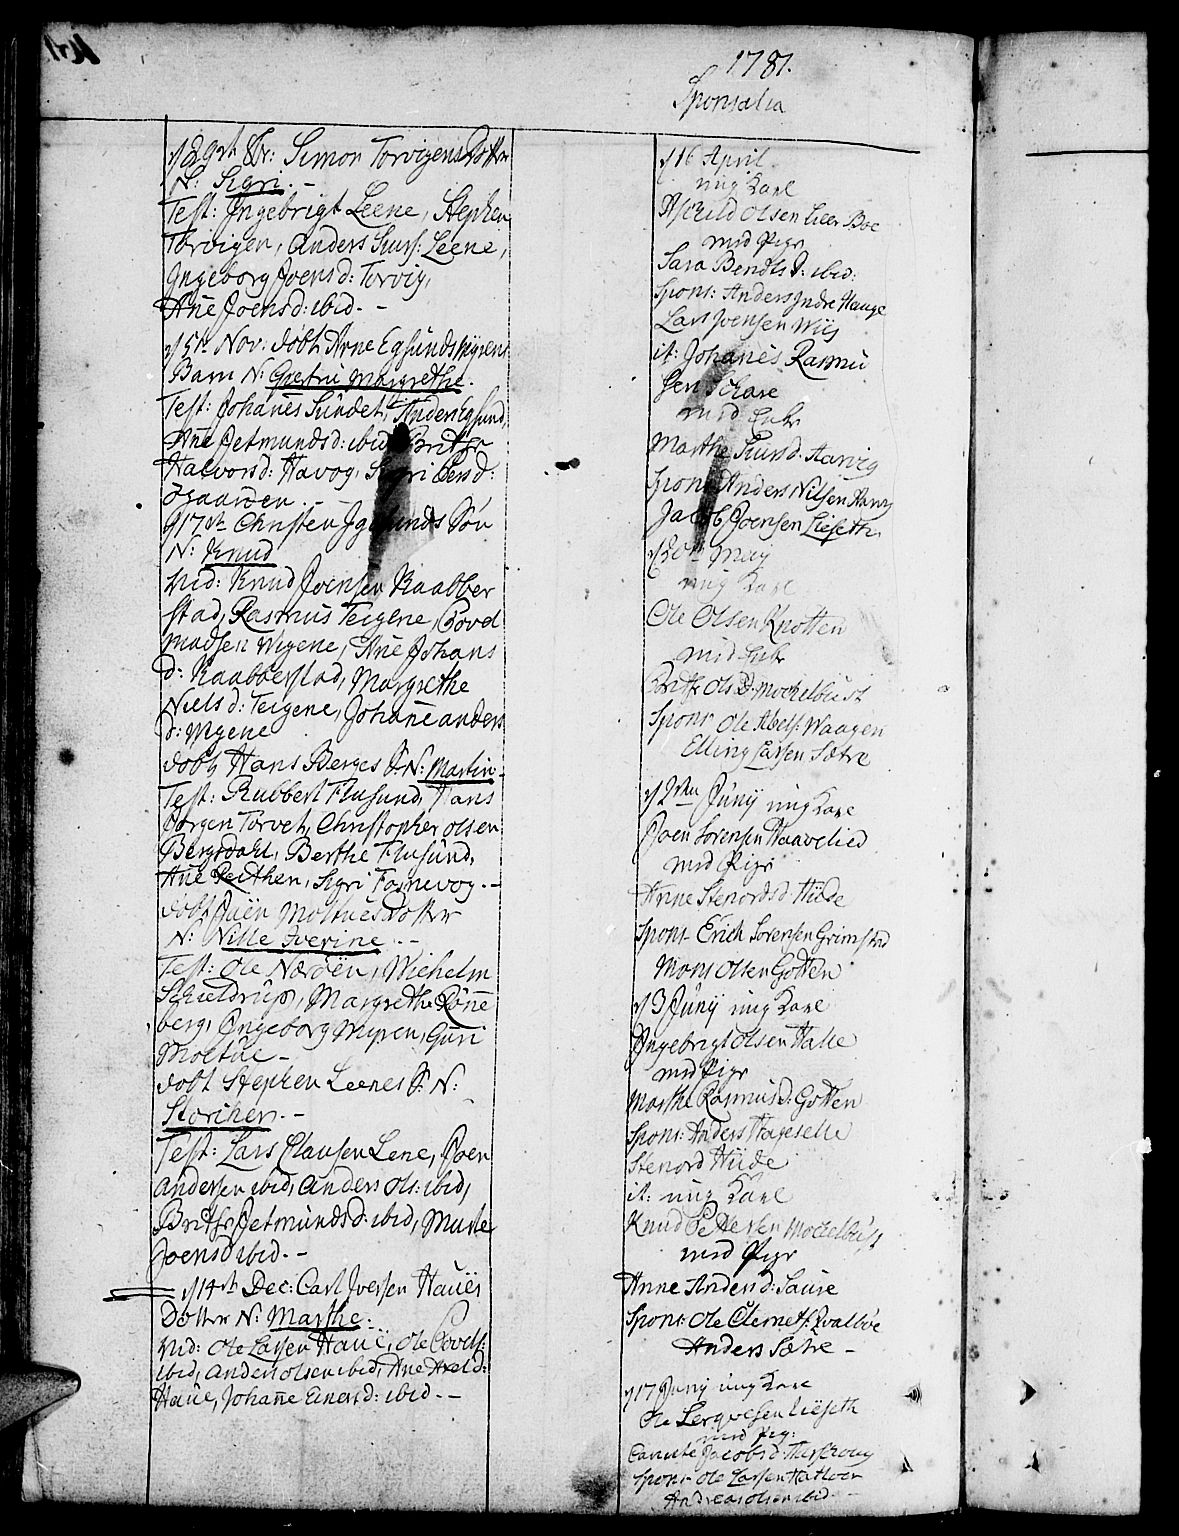 1781.
Sponsalia
d 29de 8br: Simon Torvigens Dotter
N: Sigri. -
Test: Ingebrigt Leene, Stephen
Torvigen, Anders Siurs: Leene,
Ingeborg Joensd: Torvig,
Ane Joensd: ibid. -
d 5te Nov. døbt Arne Egsundsmyrens
Barn N: Gretru Margrethe.
Test: Johanes Sundet, Anders Egsund,
Ane Jetmundsd: ibid, Brithe
Halvorsd: Havog, Sigri Iversd:
Øgaarden. -
d 17de Christen Igesunds Søn
N: Knud
Vid: Knud Joensen Raabber
stad, Rasmus Teigene, Povel
Madsen Myene, Ane Johans
d: Raabberstad, Margrethe
Nielsd: Teigene, Johane Anders
d: Myene
døbt Hans Berges S. N: Martin -
Test: Rubbert Flusund, Hans
Jørgen Torvet, Christopher Olsen
Bergsdahl, Berthe Flusund,
Ane Reithen, Sigri Fosnevog. -
døbt Joen Moltues Dotter
N: Nille Iverine. -
Test: Ole Nærøen, Wichelm
Schieldrup, Margrethe Rønne
berg, Ingeborg Myren, Guri
Moltue -
døbt Stephen Leenes S. N:
Storiher. -
Test: Lars Clausen Lene, Joen
Andersen ibid, Anders Ols: ibid,
Brithe Jetmundsd: ibid, Marte
Joensd ibid. -
d 14de Dec: Carl Iversen Haues
Dotter N: Marthe.
Vid: Ole Larsen Haue, Ole Povels:
ibid, Anders Olsen ibid, Ane Axeld:
Haue, Johane Einersd: ibid. -
d 16 April.
ung Karl
Aschild Olsen Lier Boe
med Pige
Sara Bendtsd: ibid:
Spons: Anders Indre Hauge
Lars Joensen Wiig
it: Johanes Rasmu
sen Schare
med Enke
Marthe Siursd. Aarvig
Spons Anders Nilsen Aarvig
Jacob Joensen Liesethr
d 20de May
ung Karl
Ole Olsen Knotten
med Enke
Brithe Olsd. Mochelbust
Spons Ole Abels: Waagen
Elling Larsen Sætre
d 2den Juny ung Karl
Joen Sørensen Waavelied
med Pige
Anne Stenordsd. Hiide
Spons Erich Sorensen Grimstad
Mons Olsen Gotten
d 3 Juny ung Karl
Ingebrigt Olsen Halle
med Pige
Marthe Rasmusd: Gotten
Spons: Anders Hageselle
Stenord Hiide
it: ung Karl
Knud Pettersen Mochelbust
med Pige
Anne Andersd: Saure
Spons: Ole Clemets: Qvalbøe
Anders Sætre -
d 17 Juny ung Karl
Ole Lerquesen Lieseth
med Pig:
Jacobsd:
Spons Ole Larsen
Andreas Olsen ibid. -